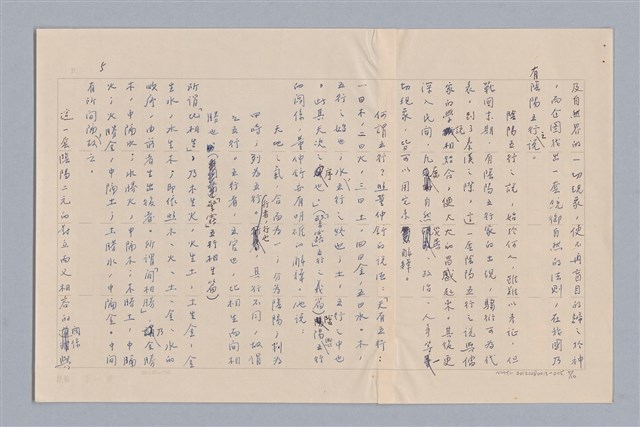 及自然界的一切現象，使人再盲目的歸之於神
，而企圖找出一套統御自然的法則，在我國乃
有陰陽五行之說。
陰陽五行之說，始於何人，雖難以考証，但
戰國末期，有陰陽五行家的出現，騶衍可為代
表，到了秦漢之際，這一套陰陽五行之說與儒
家的學說相結合，使人大大的昌盛起來，其後更
深入民間，凡自然、政治、人事等一
切現象，皆可以用它來解釋。
何謂五行？照董仲舒的說法：天有五行：
一曰木，二曰火，三曰土，四曰金，五曰水。木，
五行之始也；水，五行之終也；土，五行之中也
。此其天次之序也。五行之義篇）陰陽與五行
的關係，董仲舒亦有明確的解釋。他說：
天地之氣，合而為一；分為陰陽；判為
四時；列為五行。行者，行也，其行不同，故謂
之五行。五行者，五官也，比相生而間相
勝也（五行相生篇）
所謂「比相生」乃木生火，火生土，土生金，金
生水，水生木；即依照木、火、土、金、水的
順序，由前者生出後者。所謂「間相勝」乃金勝
木，中隔水；水勝火，中隔木；木勝土，中隔
火；火勝金，中隔土；土勝水，中隔金。中間
有所間隔故云。
這一套陰陽二元的對立而又相容的關係與
5